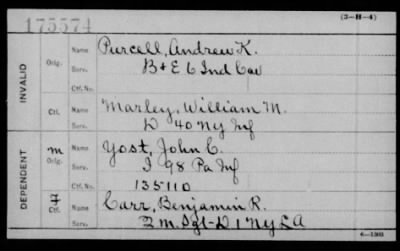 175574
(3—H—4)
INVALID
Orig.
Name Purcell, Andrew K.
Serv. B + E 6 Ind Cav
Ctf. No.
Ctf.
Name Marley, William M.
Serv. D 40 NY Inf
DEPENDENT
m
Orig.
Name Yost, John C.
Serv. I 98 Pa Inf
Ctf. No. 135110
7
Ctf.
Name Carr, Benjamin R.
Serv. 2 m. Sgt - D 1 NY L A
6—1303